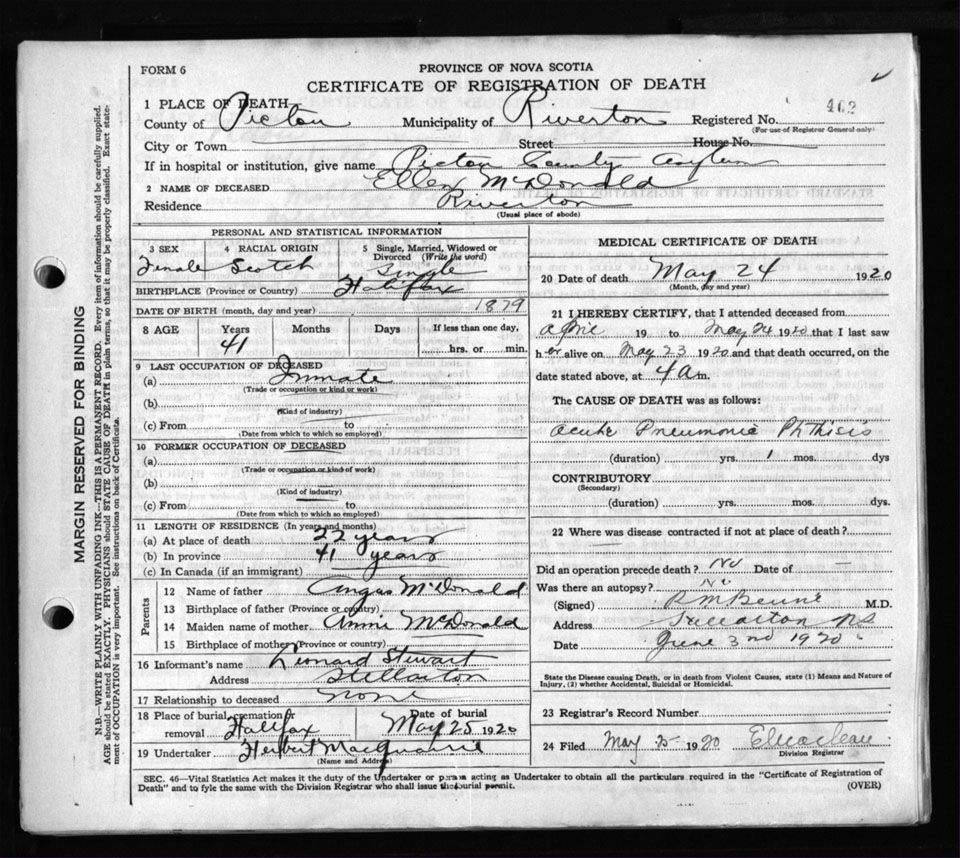 FORM 6
PROVINCE OF NOVA SCOTIA
CERTIFICATE OF REGISTRATION OF DEATH
1 PLACE OF DEATH
County of Pictou Municipality of Riverton Registered No. 402
(For use of Registrar General only)
City or Town Street House No.
If in hospital or institution, give name Pictou County Asylum
2 NAME OF DECEASED Ellen McDonald
Residence Riverton
(Usual place of abode)
MARGIN RESERVED FOR BINDING
N.B.—WRITE PLAINLY WITH UNFADING INK—THIS IS A PERMANENT RECORD. Every item of information should be carefully supplied.
AGE should be stated EXACTLY. PHYSICIANS should STATE CAUSE OF DEATH in plain terms, so that it may be properly classified. Exact state-
ment of OCCUPATION is very important. See instructions on back of Certificate.
PERSONAL AND STATISTICAL INFORMATION
3 SEX 4 RACIAL ORIGIN 5 Single, Married, Widowed or
Divorced (Write the word)
Female Scotch Single
BIRTHPLACE (Province or Country) Halifax
DATE OF BIRTH (month, day and year) 1879
8 AGE Years Months Days If less than one day,
41 hrs. or min.
9 LAST OCCUPATION OF DECEASED
(a) Inmate
(Trade or occupation or kind or work)
(b)
(Kind of industry)
(c) From to
(Date from which to which so employed)
10 FORMER OCCUPATION OF DECEASED
(a)
(Trade or occupation or kind of work)
(b)
(Kind of industry)
(c) From to
(Date from which to which so employed)
11 LENGTH OF RESIDENCE (In years and months)
(a) At place of death 22 years
(b) In province 41 years
(c) In Canada (if an immigrant)
Parents
12 Name of father Angas McDonald
13 Birthplace of father (Province or country)
14 Maiden name of mother Annie McDonald
15 Birthplace of mother (Province or country)
16 Informant's name Leonard Stewart
Address Stellarton
17 Relationship to deceased none
18 Place of burial, cremation or removal Halifax Date of burial May 25 1920
19 Undertaker Herbert MacQuarrie
(Name and Address)
MEDICAL CERTIFICATE OF DEATH
20 Date of death May 24 1920
(Month, day and year)
21 I HEREBY CERTIFY, that I attended deceased from
April 19 to May 24 1920 that I last saw
her alive on May 23 1920 and that death occurred, on the
date stated above, at 4 a m.
The CAUSE OF DEATH was as follows:
Acute Pneumonic Phthisis
(duration) yrs. 1 mos. ds
CONTRIBUTORY
(Secondary)
(duration) yrs. mos. dys.
22 Where was disease contracted if not at place of death?
Did an operation precede death? No Date of —
Was there an autopsy? No
(Signed) M.D.
Address Stellarton NS
Date June 3rd 1920
State the Disease causing Death, or in death from Violent Causes, state (1) Means and Nature of
Injury, (2) whether Accidental, Suicidal or Homicidal.
23 Registrar's Record Number
24 Filed May 25 1920
Division Registrar
SEC. 46—Vital Statistics Act makes it the duty of the Undertaker or person acting as Undertaker to obtain all the particulars required in the "Certificate of Registration of
Death" and to fyle the same with the Division Registrar who shall issue the burial permit. (OVER)